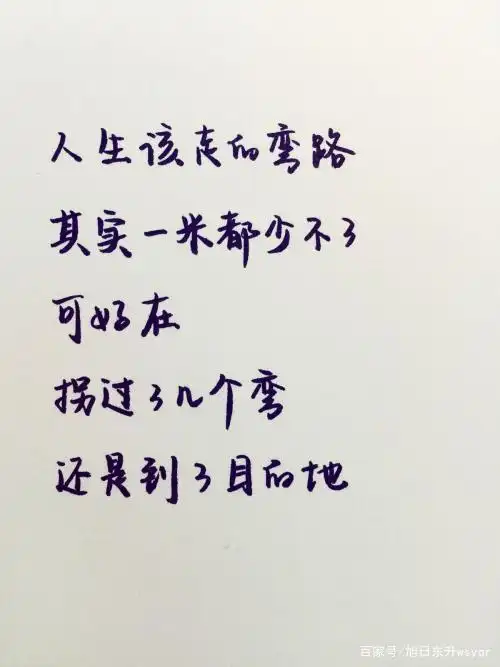 人生该走的弯路
其实一米都少不了
可好在
拐过了几个弯
还是到了目的地
百家号/旭日东升wsyar